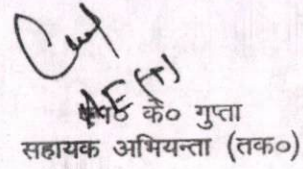 AE (T)
के० गुप्ता
सहायक अभियन्ता (तक०)